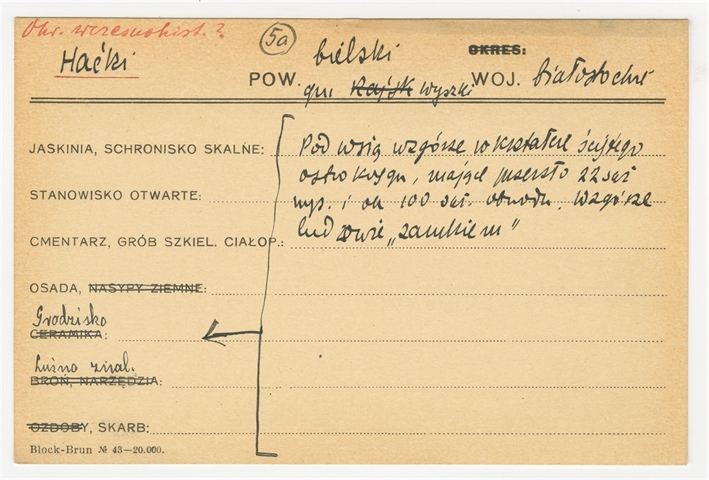 Okr. wczesnohist. ?
Haćki
5a
bielski
OKRES:
POW.
WOJ. białostockie
gm. Rajsk Wyszki
JASKINIA, SCHRONISKO SKALNE:
Pod wsią wzgórze w kształcie ściętego
ostrokręgu, mające przeszło 22 saż
STANOWISKO OTWARTE:
wys. i ok 100 saż. obwodu. Wzgórze
CMENTARZ, GRÓB SZKIEL. CIAŁOP.:
lud zowie „zamkiem”
OSADA, NASYPY ZIEMNE:
Grodzisko
CERAMIKA:
Luźno znal.
BROŃ, NARZĘDZIA:
OZDOBY, SKARB:
Block-Brun № 43—20.000.